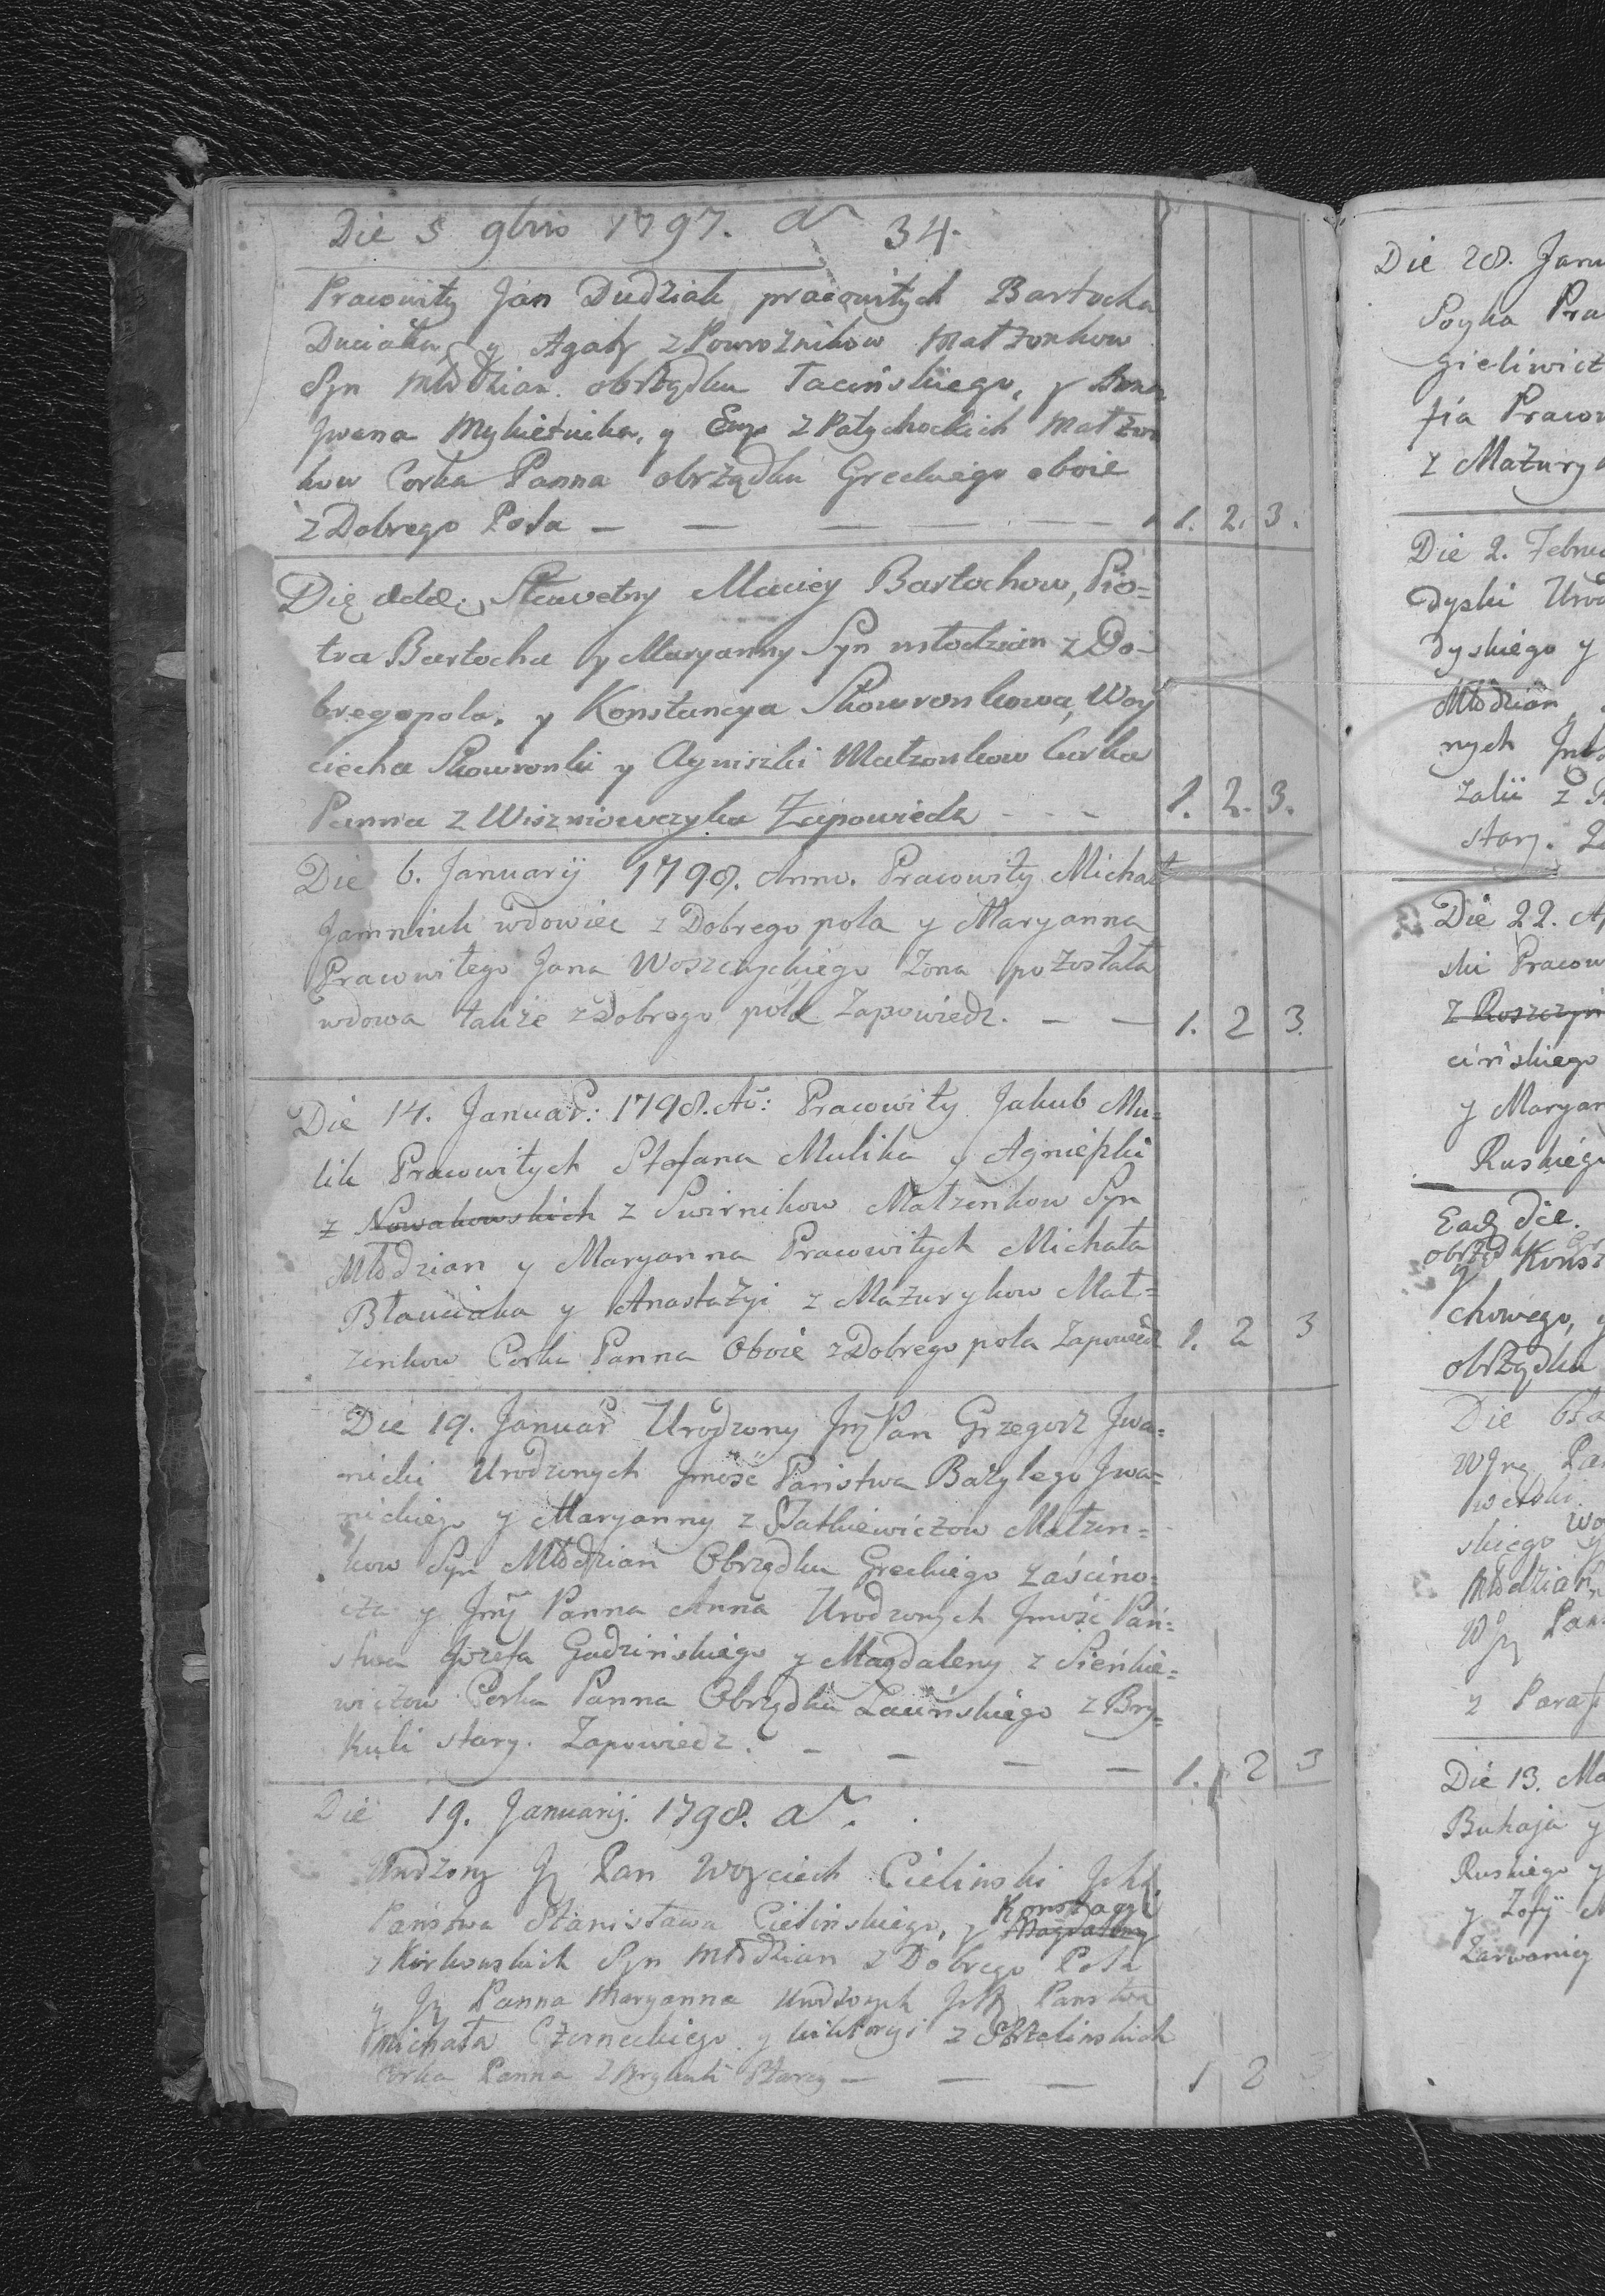 Die 5 9bris 1797. A 34.
Pracowity Jan Dudziak pracowitych Bartocha
Duciaka, y Agaty z Powrożnikow Małzonkow
Syn Młodzian obrządku Łacińskiego, y Anna
Jwana Mykietnika, y Ewy z Patychockich Małzon
kow Corka Panna obrządku Greckiego oboie
z Dobrego Pola — — — — — 1. 2. 3.
Die eadē. Sławetny Maciey Bartochow, Pio=
tra Bartocha y Maryanny Syn młodzian z Do-
bregopola. y Konstancya Skowronkowa, Woy
ciecha Skowronki y Agniszki Małzonkow Curka
Panna z Wiszniowczyka Zapowiedz - - - 1. 2. 3.
Die 6. Januarij 1798. Anno. Pracowity Michał
Jamniuk wdowiec z Dobrego pola y Maryanna
Pracowitego Jana Woszczyckiego Zona pozostała
wdowa takze z Dobrego pola Zapowiedz. — — 1. 2 3.
Die 14. Januar: 1798. Ao: Pracowity Jakub Mu=
lik Pracowitych Stefana Mulika y Agnieszki
z Nowakowskich z Swirnikow Małzenkow Syn
Młodzian y Maryanna Pracowitych Michała
Błauciaka y Anastazyi z Mazurykow Mał=
zenkow Corka Panna Oboie z Dobrego pola Zapowiedz 1. 2 3
Die 19. Januar Urodzony Jmć Pan Grzegorz Jwa=
nicki Urodzonych Jmość Państwa Bazylego Jwa=
nickiego y Maryanny z Statkiewiczow Małzen=
kow Syn Młodzian Obrządku Greckiego Zaścino=
cza y Jmć Panna Anna Urodzonych Jmość Pań=
stwa Jozefa Gadzińskiego y Magdaleny z Sieńkie=
wiczow Corka Panna Obrządku Łacińskiego z Bry=
kuli stary. Zapowiedz. — — — — 1. 2 3
Die 19. Januarij. 1798. A.
Urodzony Pan Woyciech Cielinski
Konstacyi
Państwa Stanisława Cielińskiego, y Magdaleny
z Kirkowskich Syn Młodzian z Dobrego Pola
y Panna Maryanna Urodzonych Państwa
Michała Czerneckiego y Wiktoryi z Strzelinskich
Corka Panna z Brykuli Starey — — — 1 2
Die 28. Janu
Soyka Pra
gieliwicz
fia Pracow
z Mazuryk
Die 2. Febru
dyski Uro
dyskiego y
Młodzian
nych
zalii z
stary.
Die 22. A
ski Pracow
z Roszczyń
cińskiego
y Maryan
Ruskiego
Eadē die.
obrządk
y Konst
chowego, y
obrządku
Die 6ta
Pan
welski
skiego
Młodzian
Pan
z Paraf
Die 13. Ma
Buhaja y
Ruskiego y
y Zofy
Zarwanicy